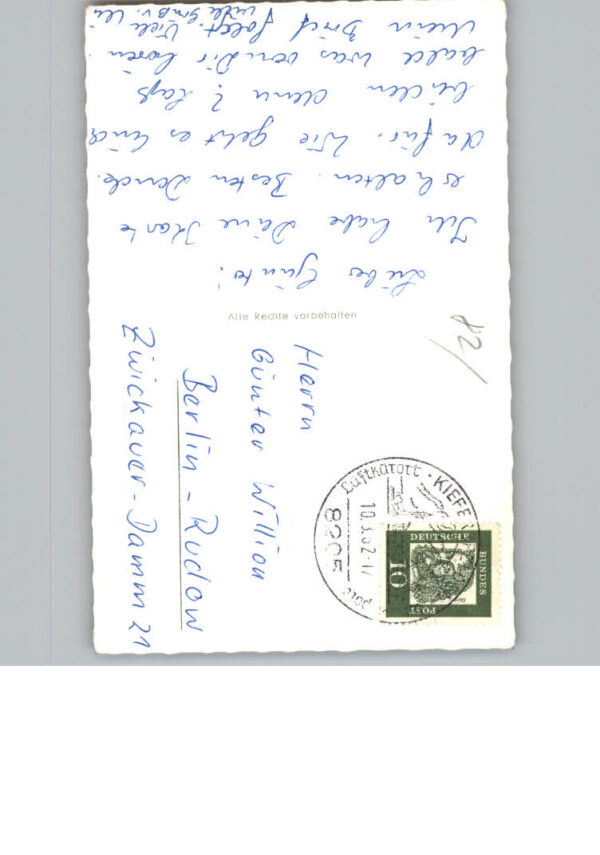 Liebes Günter!
Ich habe Deine Karte
erhalten. Besten Dank
dafür. Wie geht es Euch
beiden denn? Laß
bald was von Dir hören.
Mein Brief folgt. Viele
viele
Alle Rechte vorbehalten
Herrn
Günter Willion
Berlin - Rudow
Zwickauer-Damm 21
82/
Luftkurort · KIEFE
10.3.62-17
8205
DEUTSCHE
BUNDES
POST
10